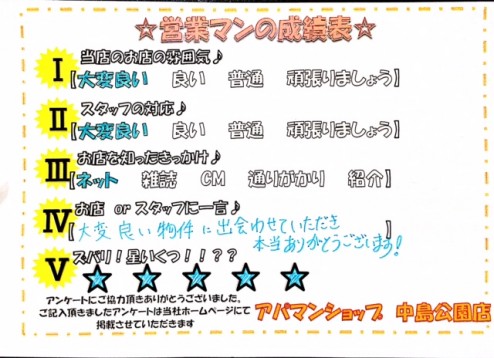 ☆営業マンの成績表☆
Ⅰ 当店のお店の雰囲気♪
【大変良い 良い 普通 頑張りましょう】
Ⅱ スタッフの対応♪
【大変良い 良い 普通 頑張りましょう】
Ⅲ お店を知ったきっかけ♪
【ネット 雑誌 CM 通りがかり 紹介】
Ⅳ お店 or スタッフに一言♪
【大変良い物件に出会わせていただき
本当ありがとうございます!】
Ⅴ ズバリ!星いくつ!!??
★ ★ ★ ★ ★
アンケートにご協力頂きありがとうございました。
ご記入頂きましたアンケートは当社ホームページにて
掲載させていただきます
アパマンショップ 中島公園店